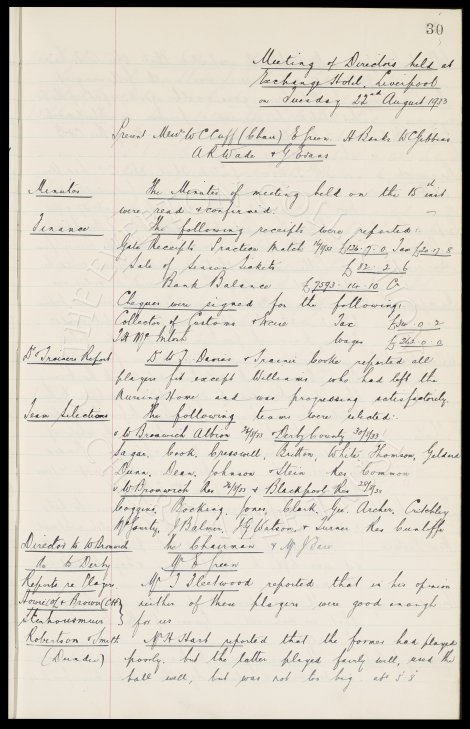 30
Meeting of Directors held at
Exchange Hotel, Liverpool
on Tuesday 22nd August 1933
Present Messrs W C Cuff (Chair) E Green. H Banks W C Gibbins
A R Wade & G Evans
Minutes The Minutes of meeting held on the 15 inst
were read & confirmed.
Finance The following receipts were reported:
Gate Receipts Practice Match £126. 7. 0. Tax £20. 17. 8
Sale of Season Tickets £ 82. 2. 6
Bank Balance £7593. 14. 10 Cr
Cheques were signed for the following:
Collector of Customs & Excise Tax 0. 2
Wages 0. 0
Dr & Trainers Report Dr W J Davies & Trainer Cooke reported all
players fit except Williams who had left the
Nursing Home and was progressing satisfactorily.
Team Selections The following teams were selected:
v W Bromwich Albion 26/8/33 & Derby County 30/8/33
Sagar. Cook. Cresswell, Britton, White, Thomson, Geldard
Dunn. Dean. Johnson & Stein. Res.
v W Bromwich Res 26/8/33 & Blackpool Res
Coggins, Bocking. Jones, Clark. Gee. Archer, Critchley
J Balmer. T G Watson. & Turner Res Cunliffe
Director to W Bromwich The Chairman & Mr
to Derby Mr E Green
Reports re Players Mr T Fleetwood reported that in his opinion
& Brown neither of these players were good enough
Stenhousemuir for us
Robertson & Smith Mr H Hart reported that the former had played
(Dundee) poorly, but the latter played fairly well, used the
ball well, but was not too big. abt 5' 8"